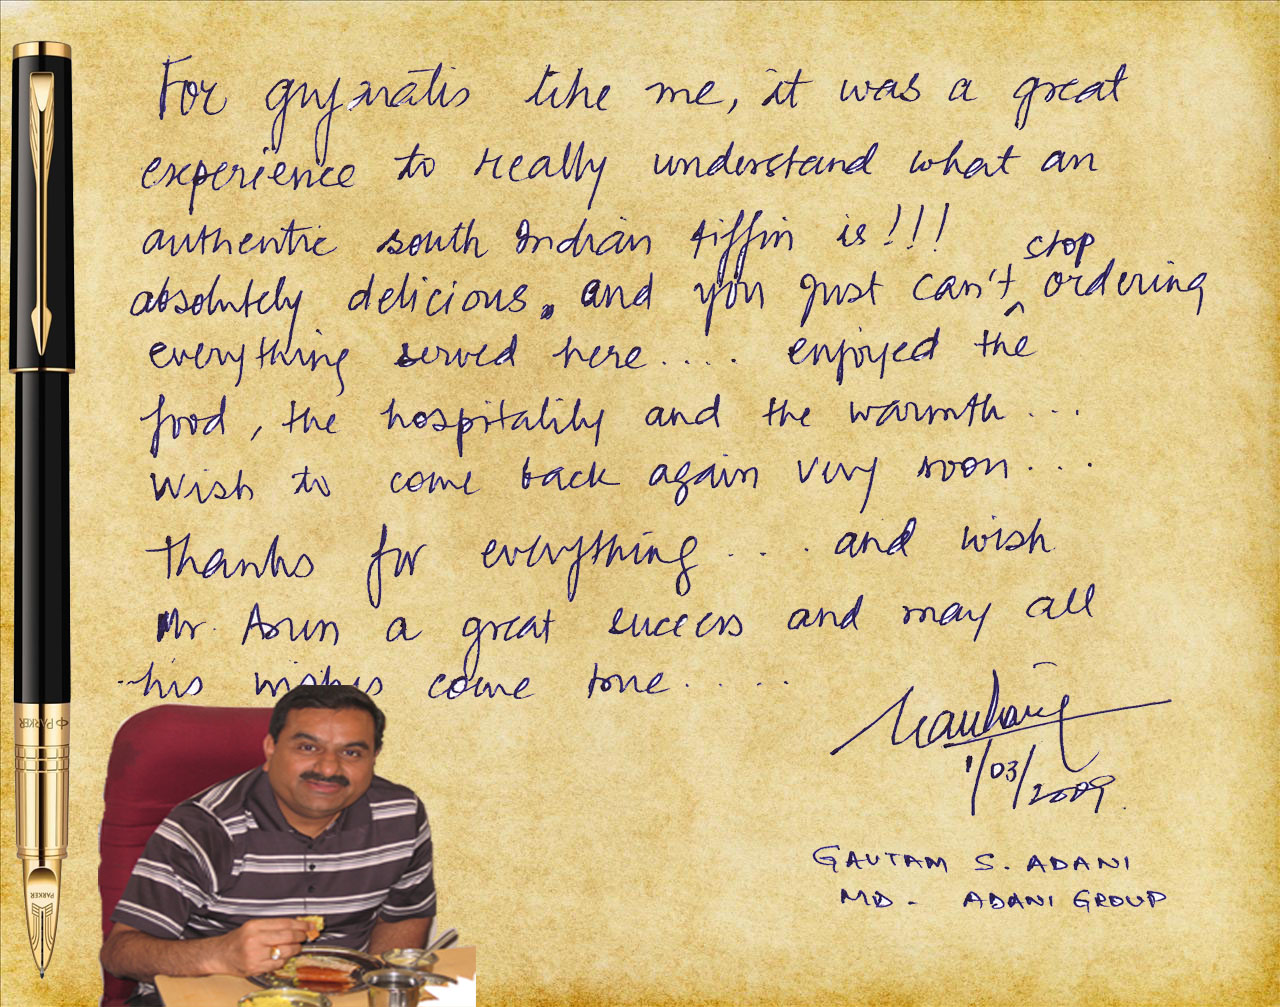 For gujaratis like me, it was a great
experience to really understand what an
authentic south Indian tiffin is!!!
absolutely delicious. and you just can't stop ordering
everything served here.... enjoyed the
food, the hospitality and the warmth...
Wish to come back again very soon...
Thanks for everything.... and wish
Mr. Arun a great success and may all
his wishes come true.....
1/03/2009.
GAUTAM S. ADANI
MD. ADANI GROUP
PARKER
PARKER